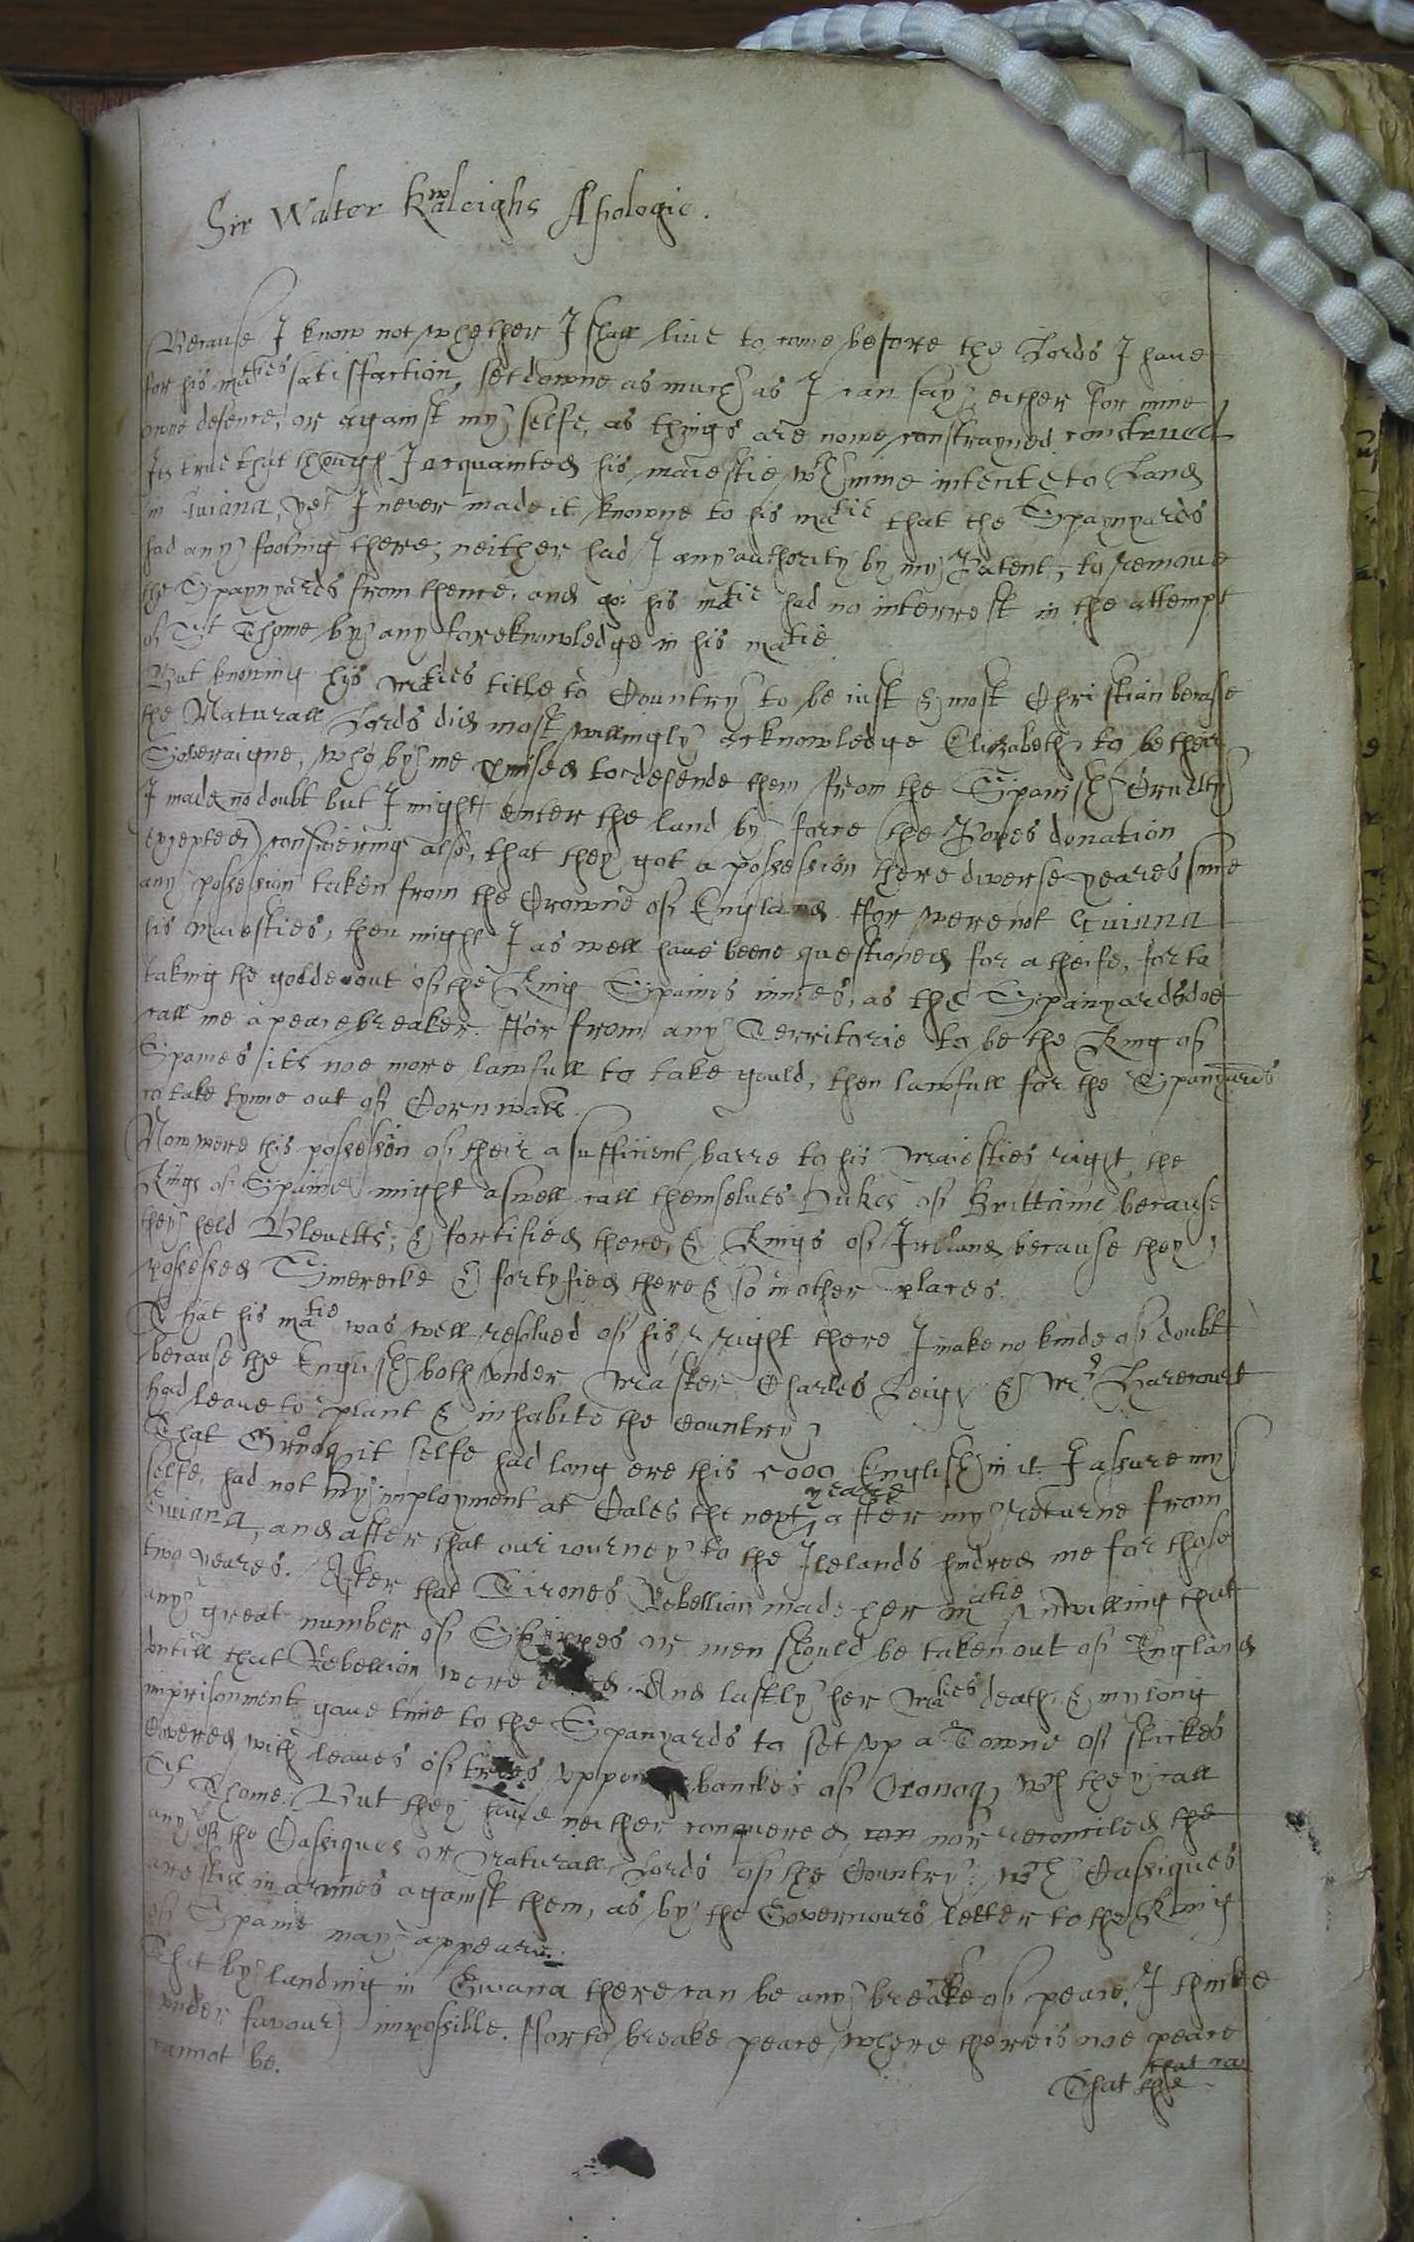 Sir Walter Rawleighs Apologie.
Because I know not whether I shall live to come before the Lords I have
for his maties satisfaction, set downe as much as I can say, either for mine
owne defence, or against my selfe, as things are nowe constrayned construed
Its true that though I acquainted his maiestie wth mine intente to Land
in Guiana, yet I never made it knowne to his matie that the Spaynyards
had any footing there; neither had I any authority by my Patent, to remove
the Spaynyards from thence. and so: his matie had no interrest in the attempt
of St Thome by any foreknowledge in his matie
But knowing his maties title to Country to be iust & most Christian becase
the Naturall Lords did most willingly acknowledge Elizabeth to be their
Soveraigne, who by me promised to defende them from the Spanish Cruelty
I made no doubt but I might enter the land by force (the Popes donation
excepted) considering also, that they got a possession there diverse yeares since
any possession taken from the Crowne of England. ffor were not Guiana
his maiesties, then might I as well have beene questioned for a theife, for to
taking the golde out of the King Spaines mines, as the Spanyards doe
call me a peace breaker. ffor from any Territorie to be the King of
Spaines its noe more lawfull to take gould, then lawfull for the Spanyards
to take tynne out of Cornwall.
Now were this possession of their a sufficient barre to his Maiesties right, the
Kings of Spaine might aswell call themselves Dukes of Brittaine because
they held Bleuetts; & fortified there, & Kings of Ireland because they
possessed Simerecke & fortyfied there & so in other places.
That his matie was well resolved of his right there I make no kinde of doubt
because the English both under Master Charles Leigh & Mr Harecourt
had leave to plant & inhabite the Country
That Oronoq it selfe had long ere this 5000 English in it I assure my
selfe, had not my imployment at Cales the next yeare after my returne from
Guiana, and after that our iourney to the Ilelands hindred me for those
two yeares. After that Tirones Rebellion made her matie unwilling that
any great number of Shippes or men should be taken out of England
untill that Rebellion were ended. And lastly her Maties death & my long
imprisonment gave time to the Spanyards to set up a Towne of stickes
Covered with leaves of trees uppon banckes of Oronoq, wch they call
St Thome. But they have neither conquered con nor reconciled the
any of the Cassiques or Naturall Lords of the Country: wch Cassiques
are still in armes against them, as by the Governours letter to the King
of Spaine may appeare.
That by landing in Gwana there can be any breake of peace, I thinke
(under favour) impossible. ffor to breake peace where there is noe peace
cannot be.
that can
That the